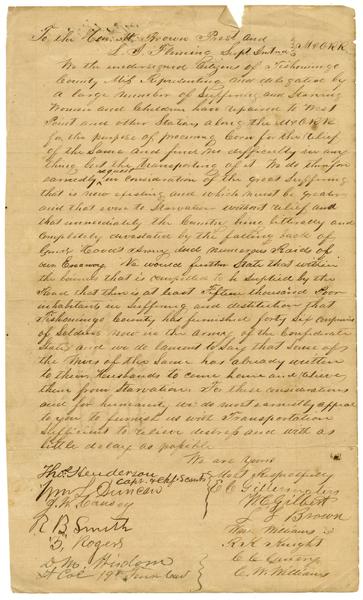 To the Hon. M. Brown Prest and
L. J. Fleming Supt Intend M&ORR
We the undersigned Citizens of Tishomingo
County Miss Representing and delegated by
a large number of Suffering and Starving
Women and Children have repaired to West
Point and other Stations along the M&ORR
for the purpose of procuring Corn for the relief
of the Same and find no difficulty in any
thing but the transporting of it We do therefore
earnestly request in Consideration of the great Suffering
that is now existing and which must be greater
and that even to Starvation without relief and
that immediately the Country being litterally and
Completely devastated by the falling back of
Genl Hoods Army and numerous Raids of
our Enemy We would further State that within
the bounds that is compelled to be Supplied by this
Road that there is at least Fifteen thousand Poor
inhabitants in Suffering and destitution that
Tishomingo County has furnished forty Six Companies
of Soldiers now in the army of the Confederate
States and we do lament to Say that Some of
the Wives of the Same has already written
to their Husbands to come home and relieve
them from Starvation. For these considerations
and for humanity we do most earnestly appeal
to you to furnish us with Transportation
Sufficient to relieve distress and with as
little delay as possible
We are yours
Most Respectfully
Thos. Henderson
Capt & Chf Scouts
Wm L Duncan
R B Smith
Rogers
D. M. Wisdom
Lt Col 19th Tenn Cav
W C Gilbert
L J Brown
Williams
R K Knight
C. W. Williams